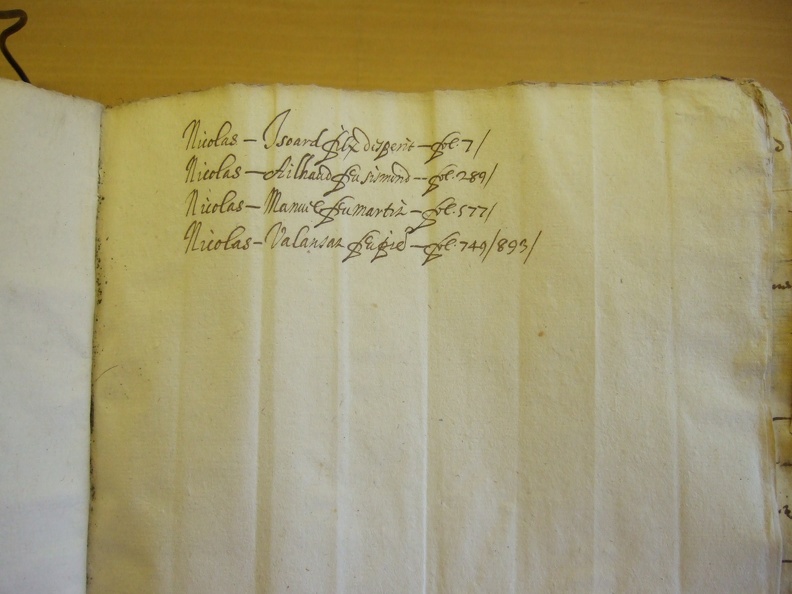 Nicolas - Isoard filz desperit - fol. 7/
Nicolas - Ailhaud feu simond - fol. 289/
Nicolas - Manuel feu martin - fol. 577/
Nicolas - Valansan feu pie - fol. 749/893/